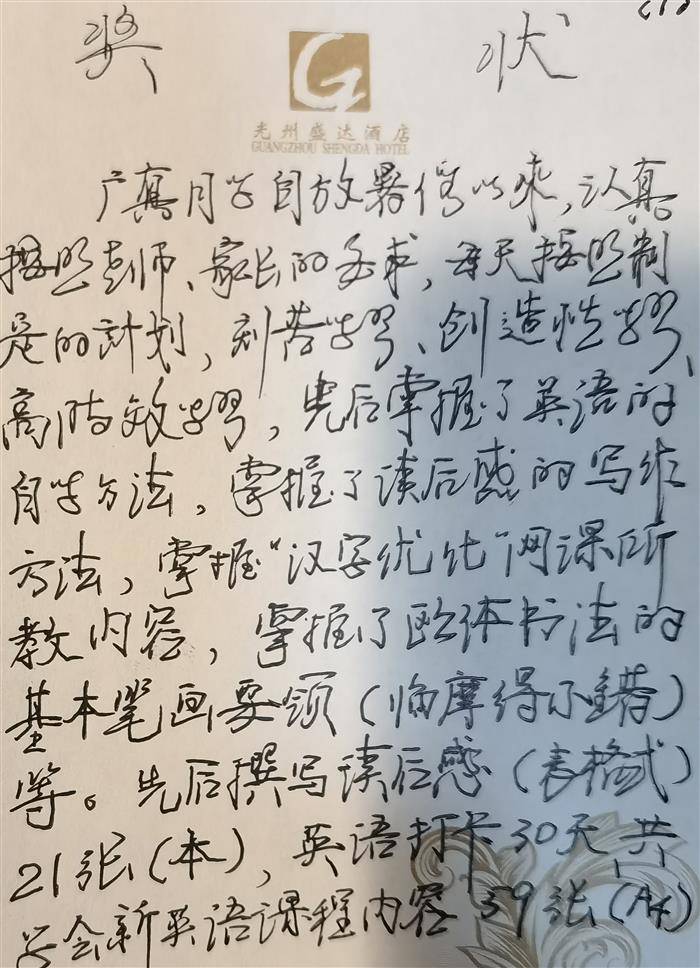 (1)
奖 状
G
光州盛达酒店
GUANGZHOU SHENGDA HOTEL
月学自放暑假以来，认真
按照老师、家长的要求，每天按照制
定的計划，刻苦学习、创造性学习、
高时效学习，先后掌握了英语的
自学方法，掌握了读后感的写作
方法，掌握“汉字优化”网课所
教内容，掌握了欧体书法的
基本笔画要领（临摩得不错）
等。先后撰写读后感（表格式）
21张（本），英语打卡30天，共
学会新英语课程内容59张（A4）